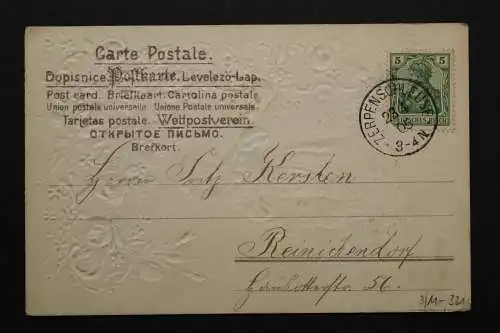 Carte Postale.
Dopisnice. Postkarte. Levelezö-Lap.
Post card. Briefkaart. Cartolina postale
Union postale universelle. Unione Postale universale.
Tarjetas postale. Weltpostverein.
ОТКРЫТОЕ ПИСЬМО.
Brefkort.
5 5
ZERPENSCHLEUSE
3-4 N.
Herrn Fritz Kersten
Reinickendorf
56.